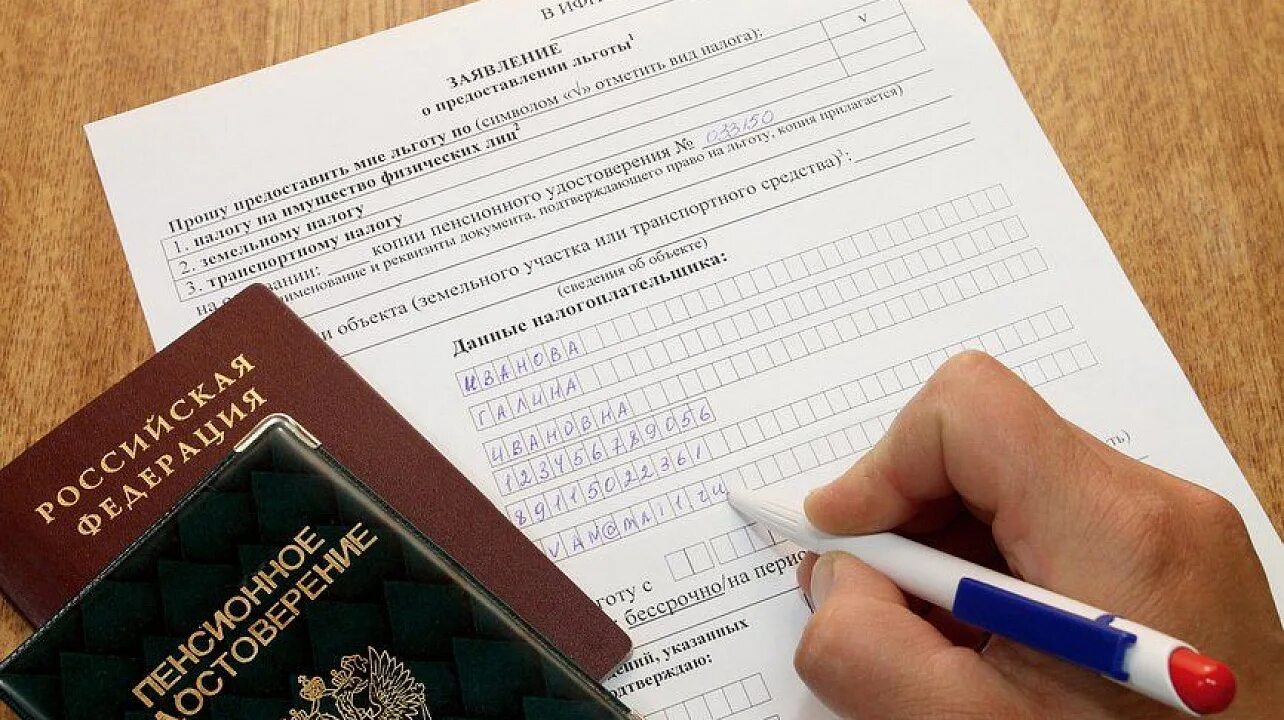 В ИФН
ЗАЯВЛЕНИЕ
о предоставлении льготы¹
Прошу предоставить мне льготу по (символом «√» отметить вид налога):
1. налогу на имущество физических лиц² V
2. земельному налогу
3. транспортному налогу
на копии пенсионного удостоверения № 033150
именование и реквизиты документа, подтверждающего право на льготу, копия прилагается)
и объекта (земельного участка или транспортного средства)³:
(сведения об объекте)
Данные налогоплательщика:
ИВАНОВА
ГАЛИНА
ИВАНОВНА
123456789056
89115022361
VAM@mail.ru
ть)
оту с
бессрочно/на перио
ений, указанных
одтверждаю:
РОССИЙСКАЯ
ФЕДЕРАЦИЯ
ПЕНСИОННОЕ
УДОСТОВЕРЕНИЕ